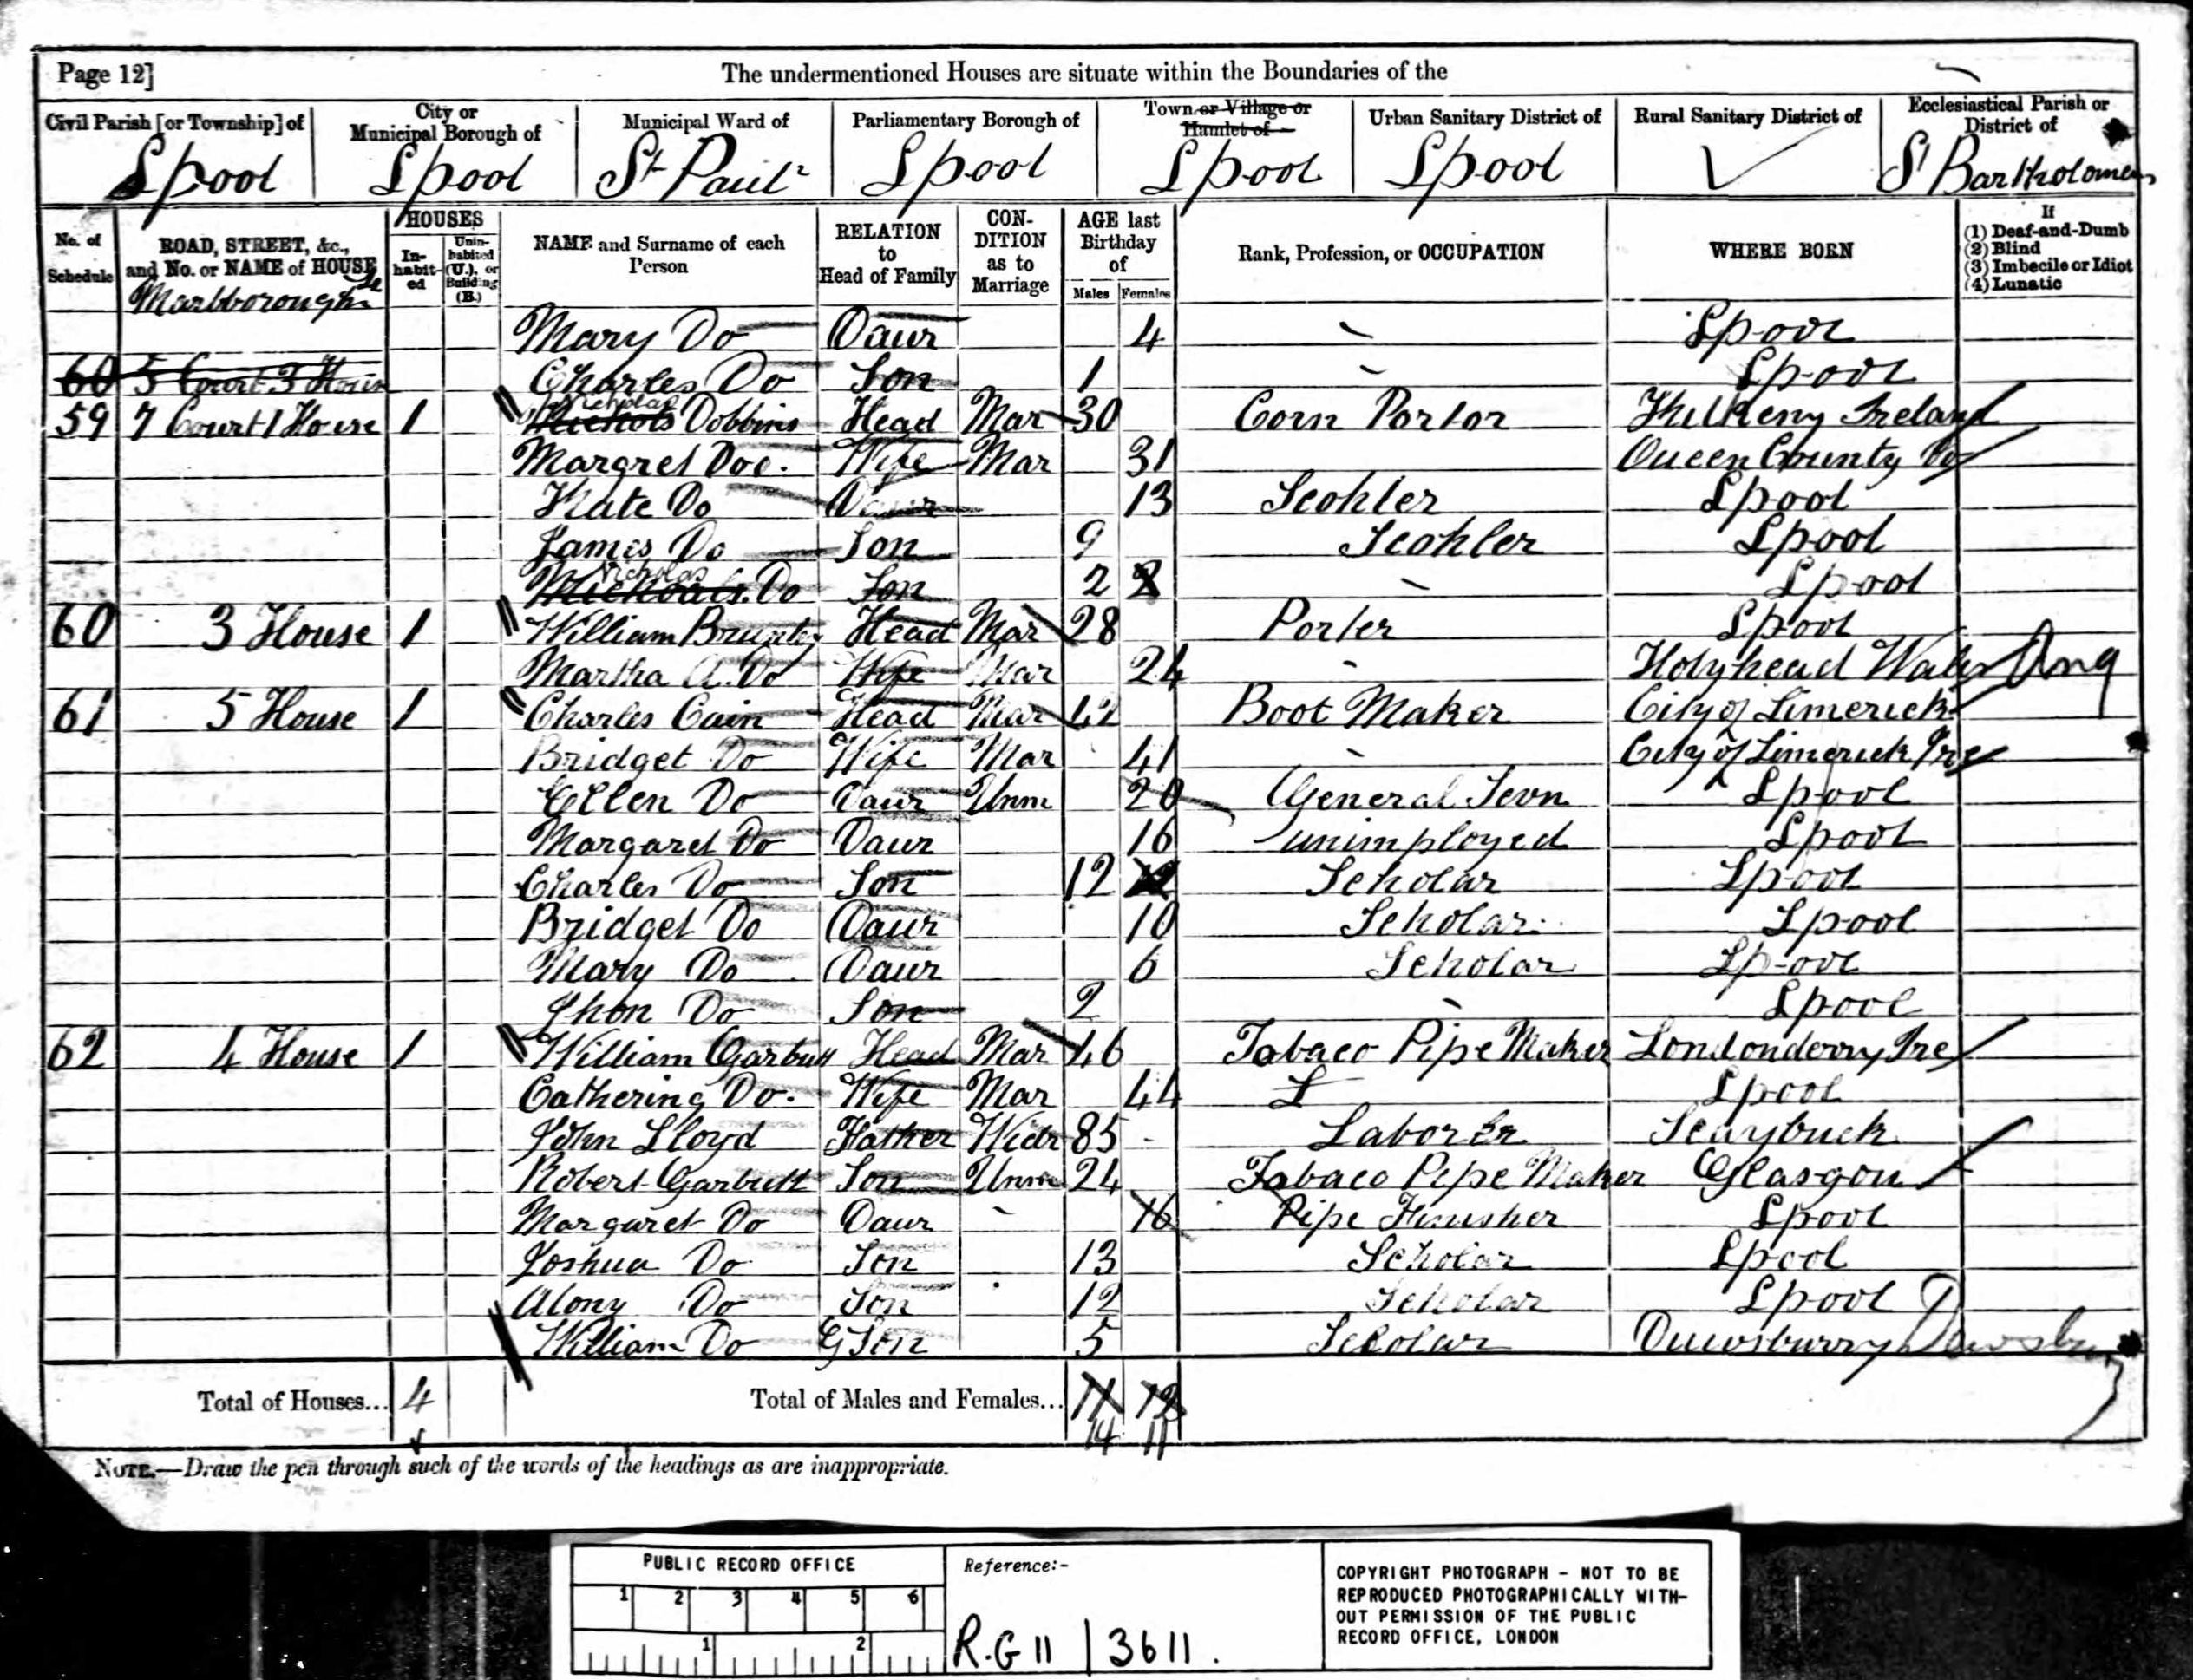 Page 12]
The undermentioned Houses are situate within the Boundaries of the
Civil Parish [or Township] of | City or Municipal Borough of | Municipal Ward of | Parliamentary Borough of | Town or Village or Hamlet of | Urban Sanitary District of | Rural Sanitary District of | Ecclesiastical Parish or District of
Lpool | Lpool | St Pauls | Lpool | Lpool | Lpool | St Bartholomews
No. of Schedule | ROAD, STREET, &c., and No. or NAME of HOUSE | HOUSES In-habit-ed | Unin-habited (U.), or Building (B.) | NAME and Surname of each Person | RELATION to Head of Family | CON-DITION as to Marriage | AGE last Birthday of Males Females | Rank, Profession, or OCCUPATION | WHERE BORN | If (1) Deaf-and-Dumb (2) Blind (3) Imbecile or Idiot (4) Lunatic
Marlborough
Mary Do Daur 4 Lpool
60 5 Court 3 House Charles Do Son 1 Lpool
59 7 Court 1 House 1 Nicholas Dobbins Head Mar 30 Corn Porter Kilkeny Ireland
Margret Doo. Wife Mar 31 Queen County Do
Kate Do Daur 13 Scohler Lpool
James Do Son 9 Scohler Lpool
Nicholas Do Son 2 2 Lpool
60 3 House 1 William Head Mar 28 Porter Lpool
Martha A. Do Wife Mar 24 Holyhead Wales Ang
61 5 House 1 Charles Cain Head Mar 42 Boot Maker City of Limerick
Bridget Do Wife Mar 41 City of Limerick Ire
Ellen Do Daur Unm 20 General Sevn Lpool
Margaret Do Daur 16 unimployed Lpool
Charles Do Son 12 12 Scholar Lpool
Bridget Do Daur 10 Scholar Lpool
Mary Do Daur 6 Scholar Lpool
Jhon Do Son 2 Lpool
62 4 House 1 William Garbutt Head Mar 46 Tabaco Pipe Maker Londonderry Ire
Cathering Do. Wife Mar 44 Lpool
John Lloyd Father Widr 85 Laborer
Robert Garbutt Son Unm 24 Tabaco Pipe Maker Glasgow
Margaret Do Daur 16 Pipe Finisher Lpool
Joshua Do Son 13 Scholar Lpool
Alony Do Son 12 Scholar Lpool
William Do G Son 5 Scholar Duwsburry Dewsbury
Total of Houses... 4 Total of Males and Females... 11 13
14 11
NOTE.—Draw the pen through such of the words of the headings as are inappropriate.
PUBLIC RECORD OFFICE
1 2 3 4 5 6
1 2
Reference:-
R.G 11 / 3611.
COPYRIGHT PHOTOGRAPH – NOT TO BE
REPRODUCED PHOTOGRAPHICALLY WITH-
OUT PERMISSION OF THE PUBLIC
RECORD OFFICE, LONDON